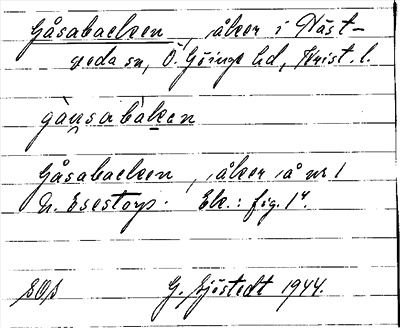 Gåsabacken, åker i Häst-
veda sn, Ö. Göinge hd, Krist. l.
gàu̯sabàkan
Gåsabacken, åker å nr 1
N. Esestorp. Ek.: fig. 1
G. Sjöstedt 1944.